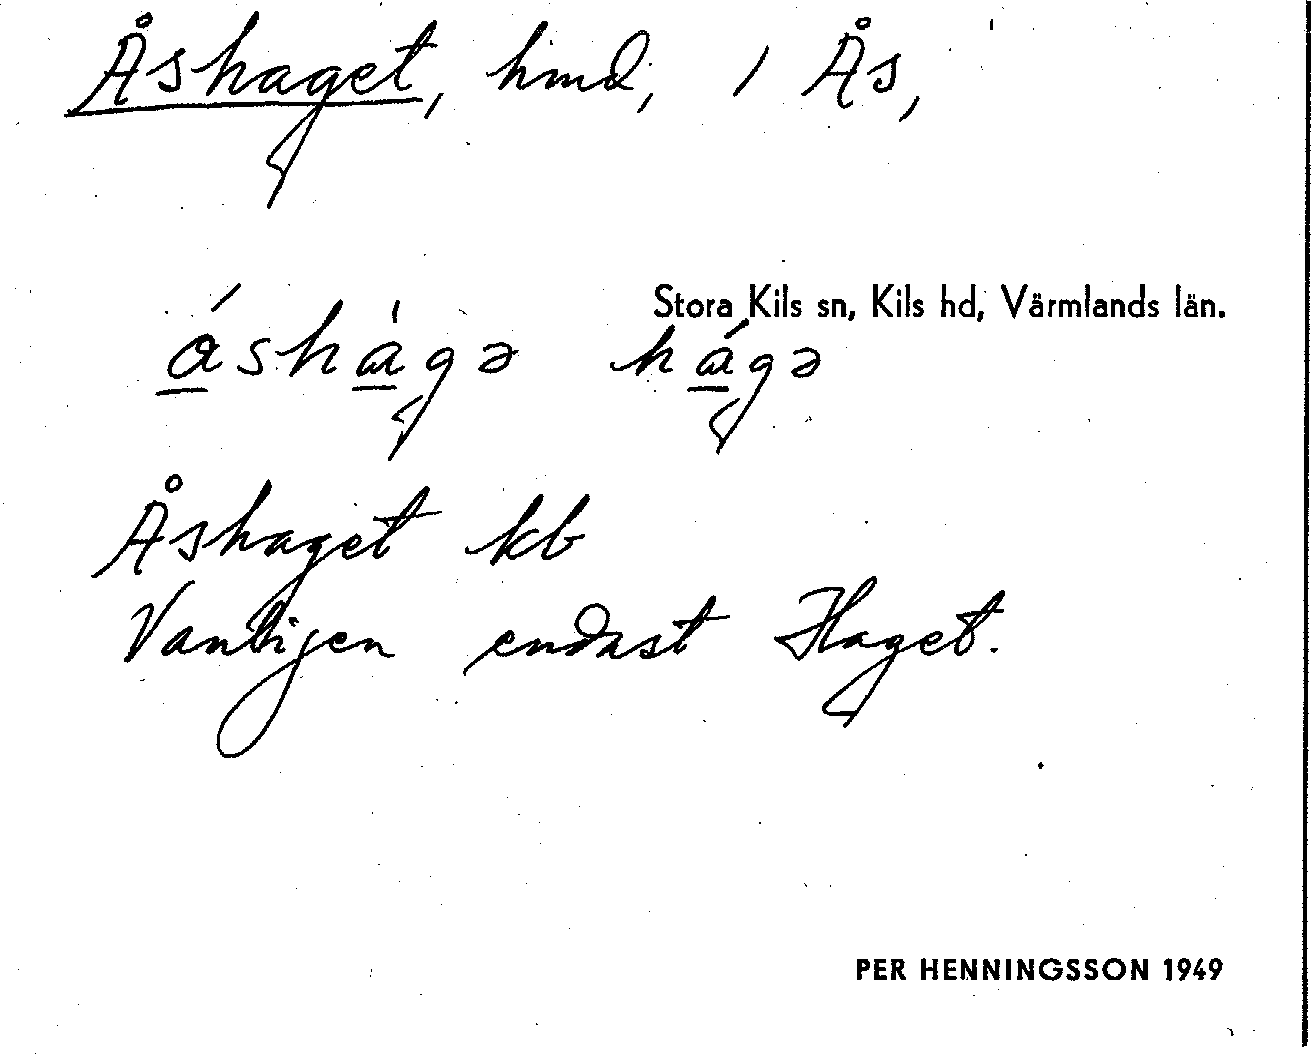 Åshaget, hmd, 1 Ås,
Stora Kils sn, Kils hd, Värmlands län.
ás̱hàgə hágə
Åshaget kb
Vanligen endast Haget.
PER HENNINGSSON 1949